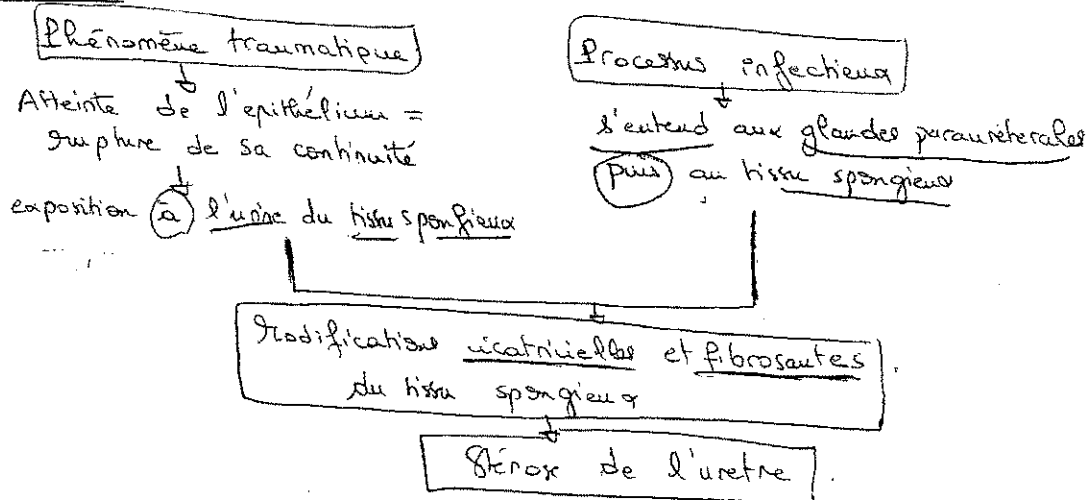 Phénomène traumatique
Atteinte de l'epithélium =
rupture de sa continuité
exposition à l'urine du tissu spongieux
Processus infectieux
s'entend aux glandes paraurétérales
puis au tissu spongieux
Modifications cicatricielles et fibrosantes
du tissu spongieux
Sténose de l'uretre